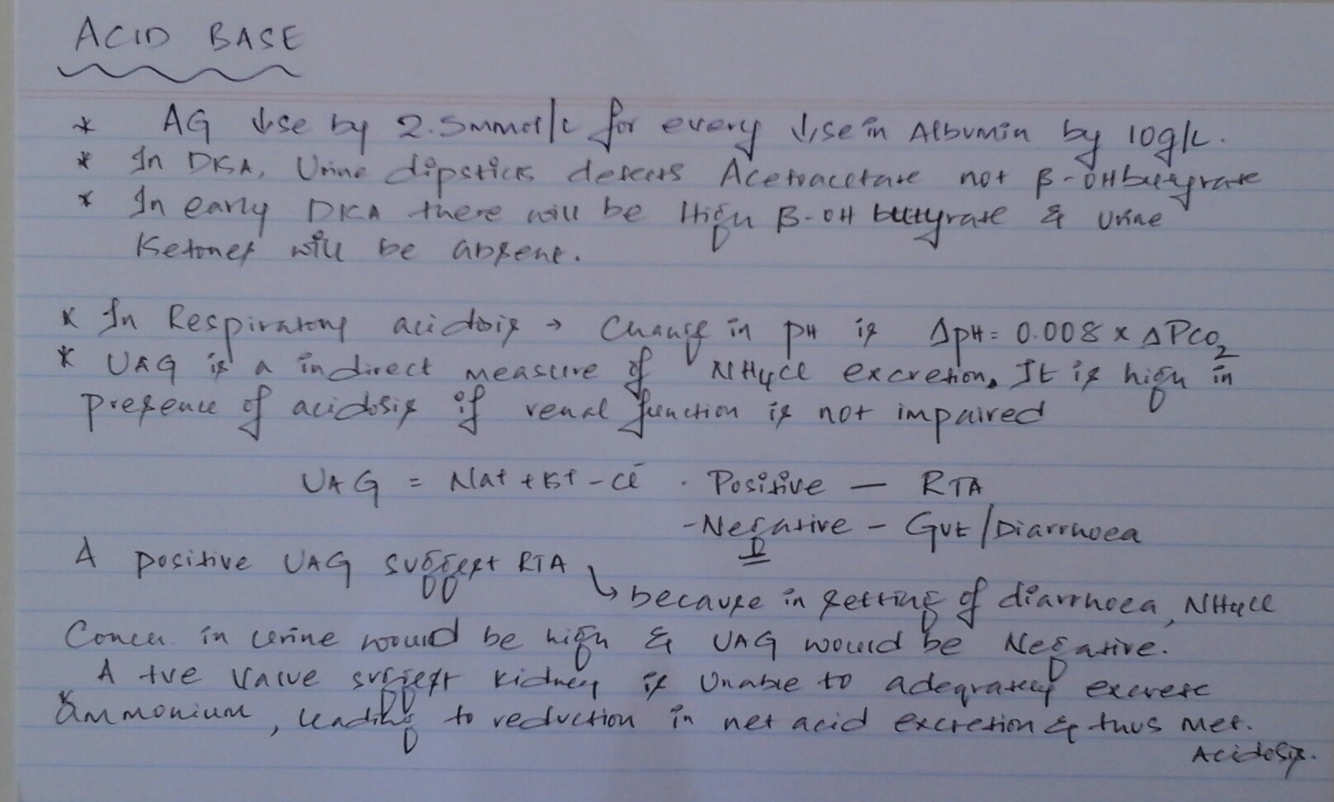 ACID BASE
* AG ↓se by 2.5mmol/L for every ↓se in Albumin by 10g/L.
* In DKA, Urine dipsticks detects Acetoacetate not β-OH butyrate
* In early DKA there will be High β-OH butyrate & Urine
Ketones will be absent.
* In Respiratory acidosis → Change in pH is ΔpH = 0.008 x ΔPCO2
* UAG is a indirect measure of NH4Cl excretion. It is high in
presence of acidosis if renal function is not impaired
UAG = Na+ + K+ - Cl- . Positive — RTA
- Negative - GUT/Diarrhoea
A positive UAG suggest RTA
↳ because in setting of diarrhoea, NH4Cl
Concn. in urine would be high & UAG would be Negative.
* A +ve value suggest kidney is Unable to adequately excrete
ammonium, leading to reduction in net acid excretion & thus Met.
Acidosis.